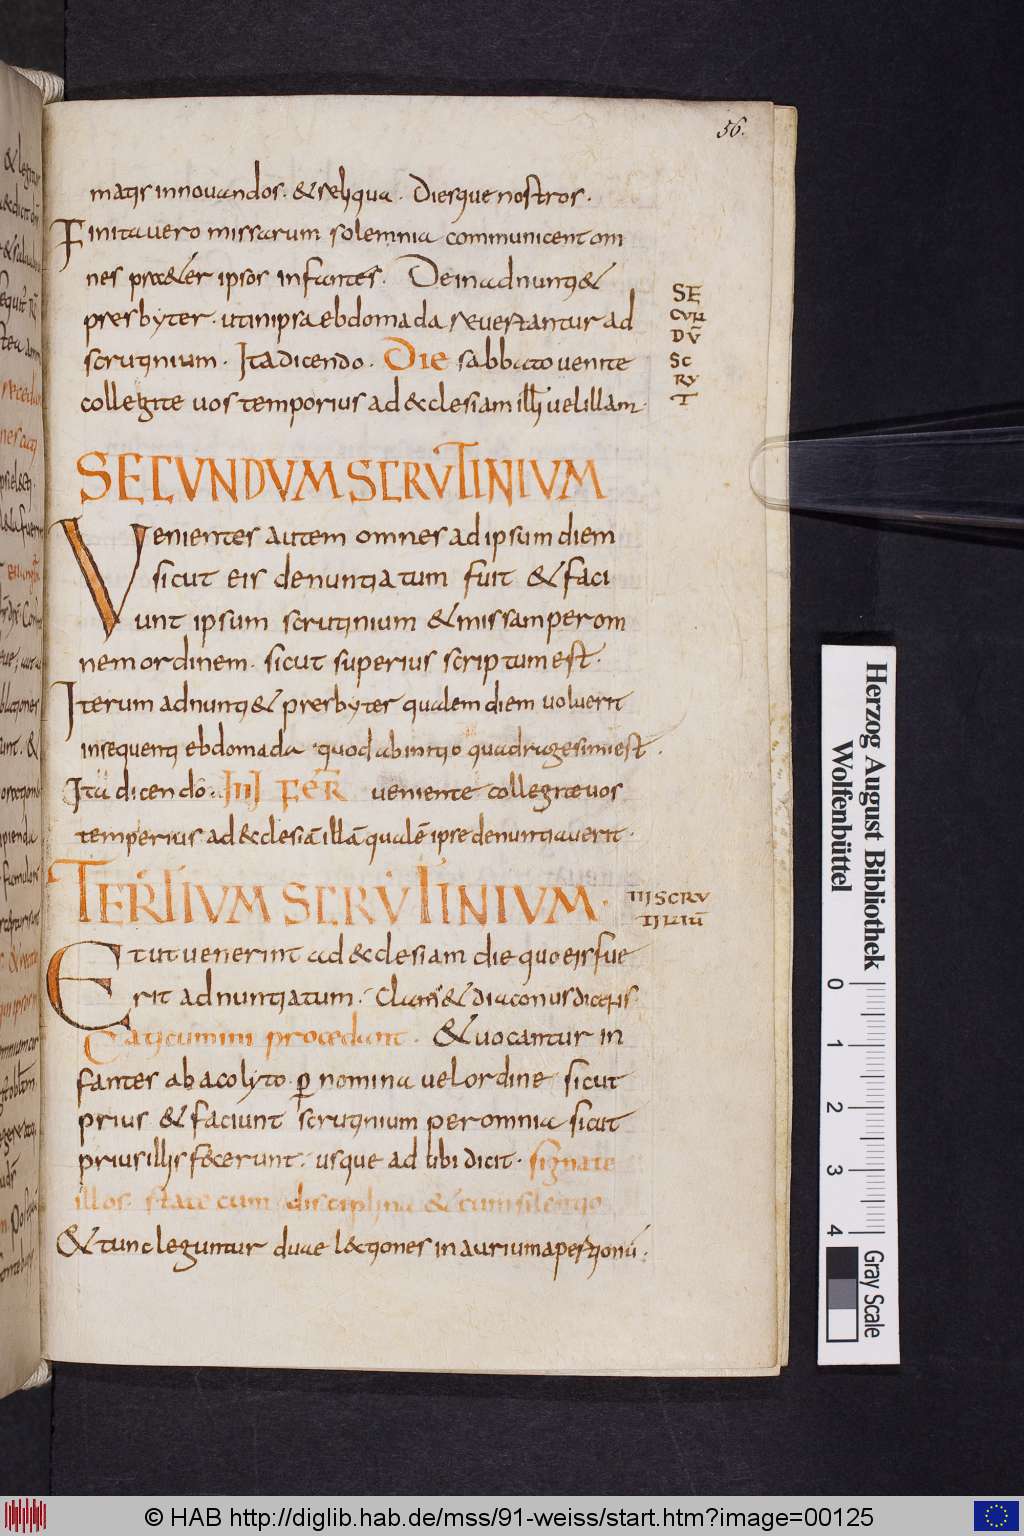 56.
matis innouandos. & reliqua. Diesque nostros.
Finita uero missarum solemnia communicent om
nes praeter ipsos infantes. Dein adnunti&
presbyter. ut in ipsa ebdomada reuertantur ad
scrutinium. Ita dicendo. Die sabbato uenite
collegite uos temporius ad &clesiam illi uel illam.
SE
CUN
DŪ
SC
RU
T
SECUNDUM SCRUTINIUM
Venientes autem omnes ad ipsum diem
sicut eis denuntiatum fuit & faci
unt ipsum scrutinium & missam per om
nem ordinem. sicut superius scriptum est.
Iterum adnunti& presbyter qualem diem uoluerit
insequenti ebdomada quod ab initio quadragesimi est.
Ita dicendo. IIII FER ueniente collegite uos
temperius ad &clesiā illā qualē ipse denuntiauerit.
TERTIUM SCRUTINIUM.
III SCRU
TINIŪ
Et ut uenerint ad &clesiam die quo eis fue
rit adnuntiatum. Clam& diaconus dicens.
Caticumini procedant. & uocantur in
fantes ab acolyto p nomina uel ordine sicut
prius & faciunt scrutinium per omnia sicut
prius illis fecerunt. usque ad ubi dicit. signate
illos. state cum disciplina & cum silentio
& tunc leguntur duae l&ctiones in aurium apertionū.
Herzog August Bibliothek
Wolfenbüttel
0 1 2 3 4
Gray Scale
© HAB http://diglib.hab.de/mss/91-weiss/start.htm?image=00125